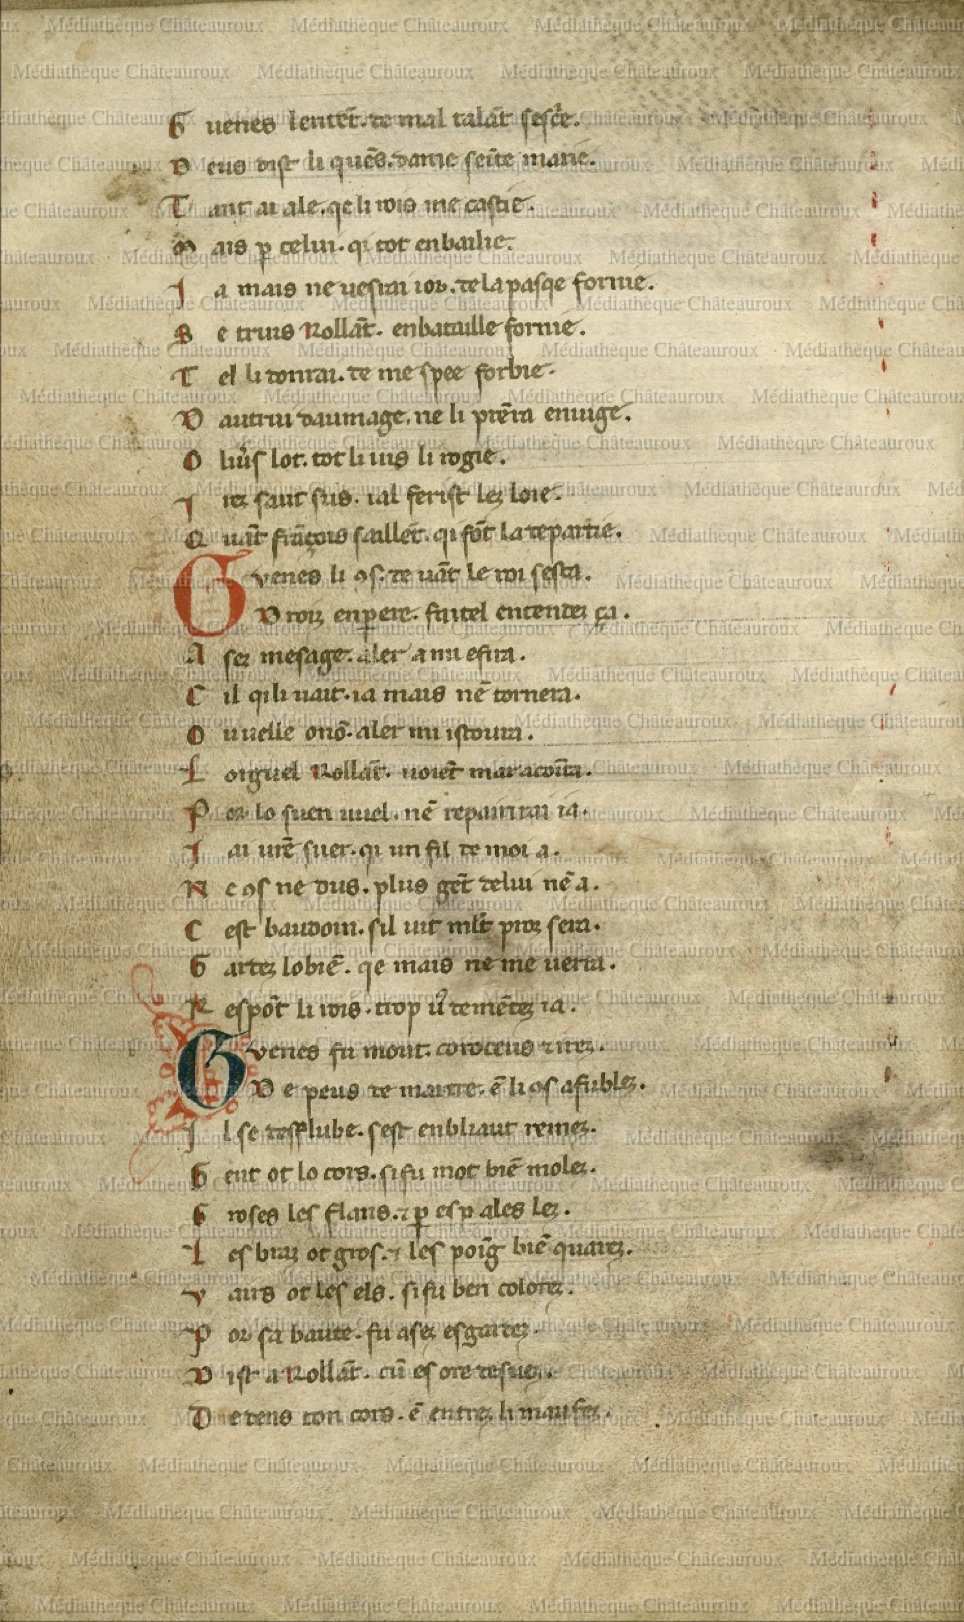 G uenes lentēt. de mal talāt sescͥe.
D eus dist li quēs. dame seīte marie.
T ant ai ale. qe li rois me castie.
M ais ꝑ celui. qi tot en bailie.
J a mais ne uesrai ior. de la pasqe florie.
S e truis Rollāt. en bataille fornie.
T el li donrai. de me spee forbie.
D autrui daumage. ne li prēra enuige.
O liu͛s lot. tot li uis li rogie.
J rez saut sus. ial ferist lez loie.
Q uāt frāçois saillēt. qi fōt la departie.
G venes li ꝯs. deuāt le roi sesta.
D roiz enꝑere. fait el entendez ça.
A sez mesage. aler a mi esira.
C il qi li uait. ia mais nē tornera.
O u uelle o nō. aler mi istoura.
L orguel Rollāt. uoiēt maracōta.
P or lo suen uuel. nē repairrai ia.
J ai urē suer. qi un fil de moi a.
N e ꝯs ne dus. plus gēt de lui nē a.
C est baudoin. sil uit ml̄t proz sera.
G ardez lo biē. qe mais ne me uerra.
R espōt li rois. trop u͛ demētez ia.
G venes fu mout. coroceus ⁊ irez.
D e peus de martre. ē li ꝯs afublez.
J l se desflube. sest en bliaut remez.
G ent ot lo cors. si fu mot biē molez.
G roses les flans. ⁊ ꝑ espales lez.
L es braz ot gros. ⁊ les poīg biē quarez.
V airs ot les els. si fu ben colorez.
P or sa baute. fu asez esgardez.
D ist a Rollāt. cū es ore desuez.
D edens ton cors. ē entrez li maufez.